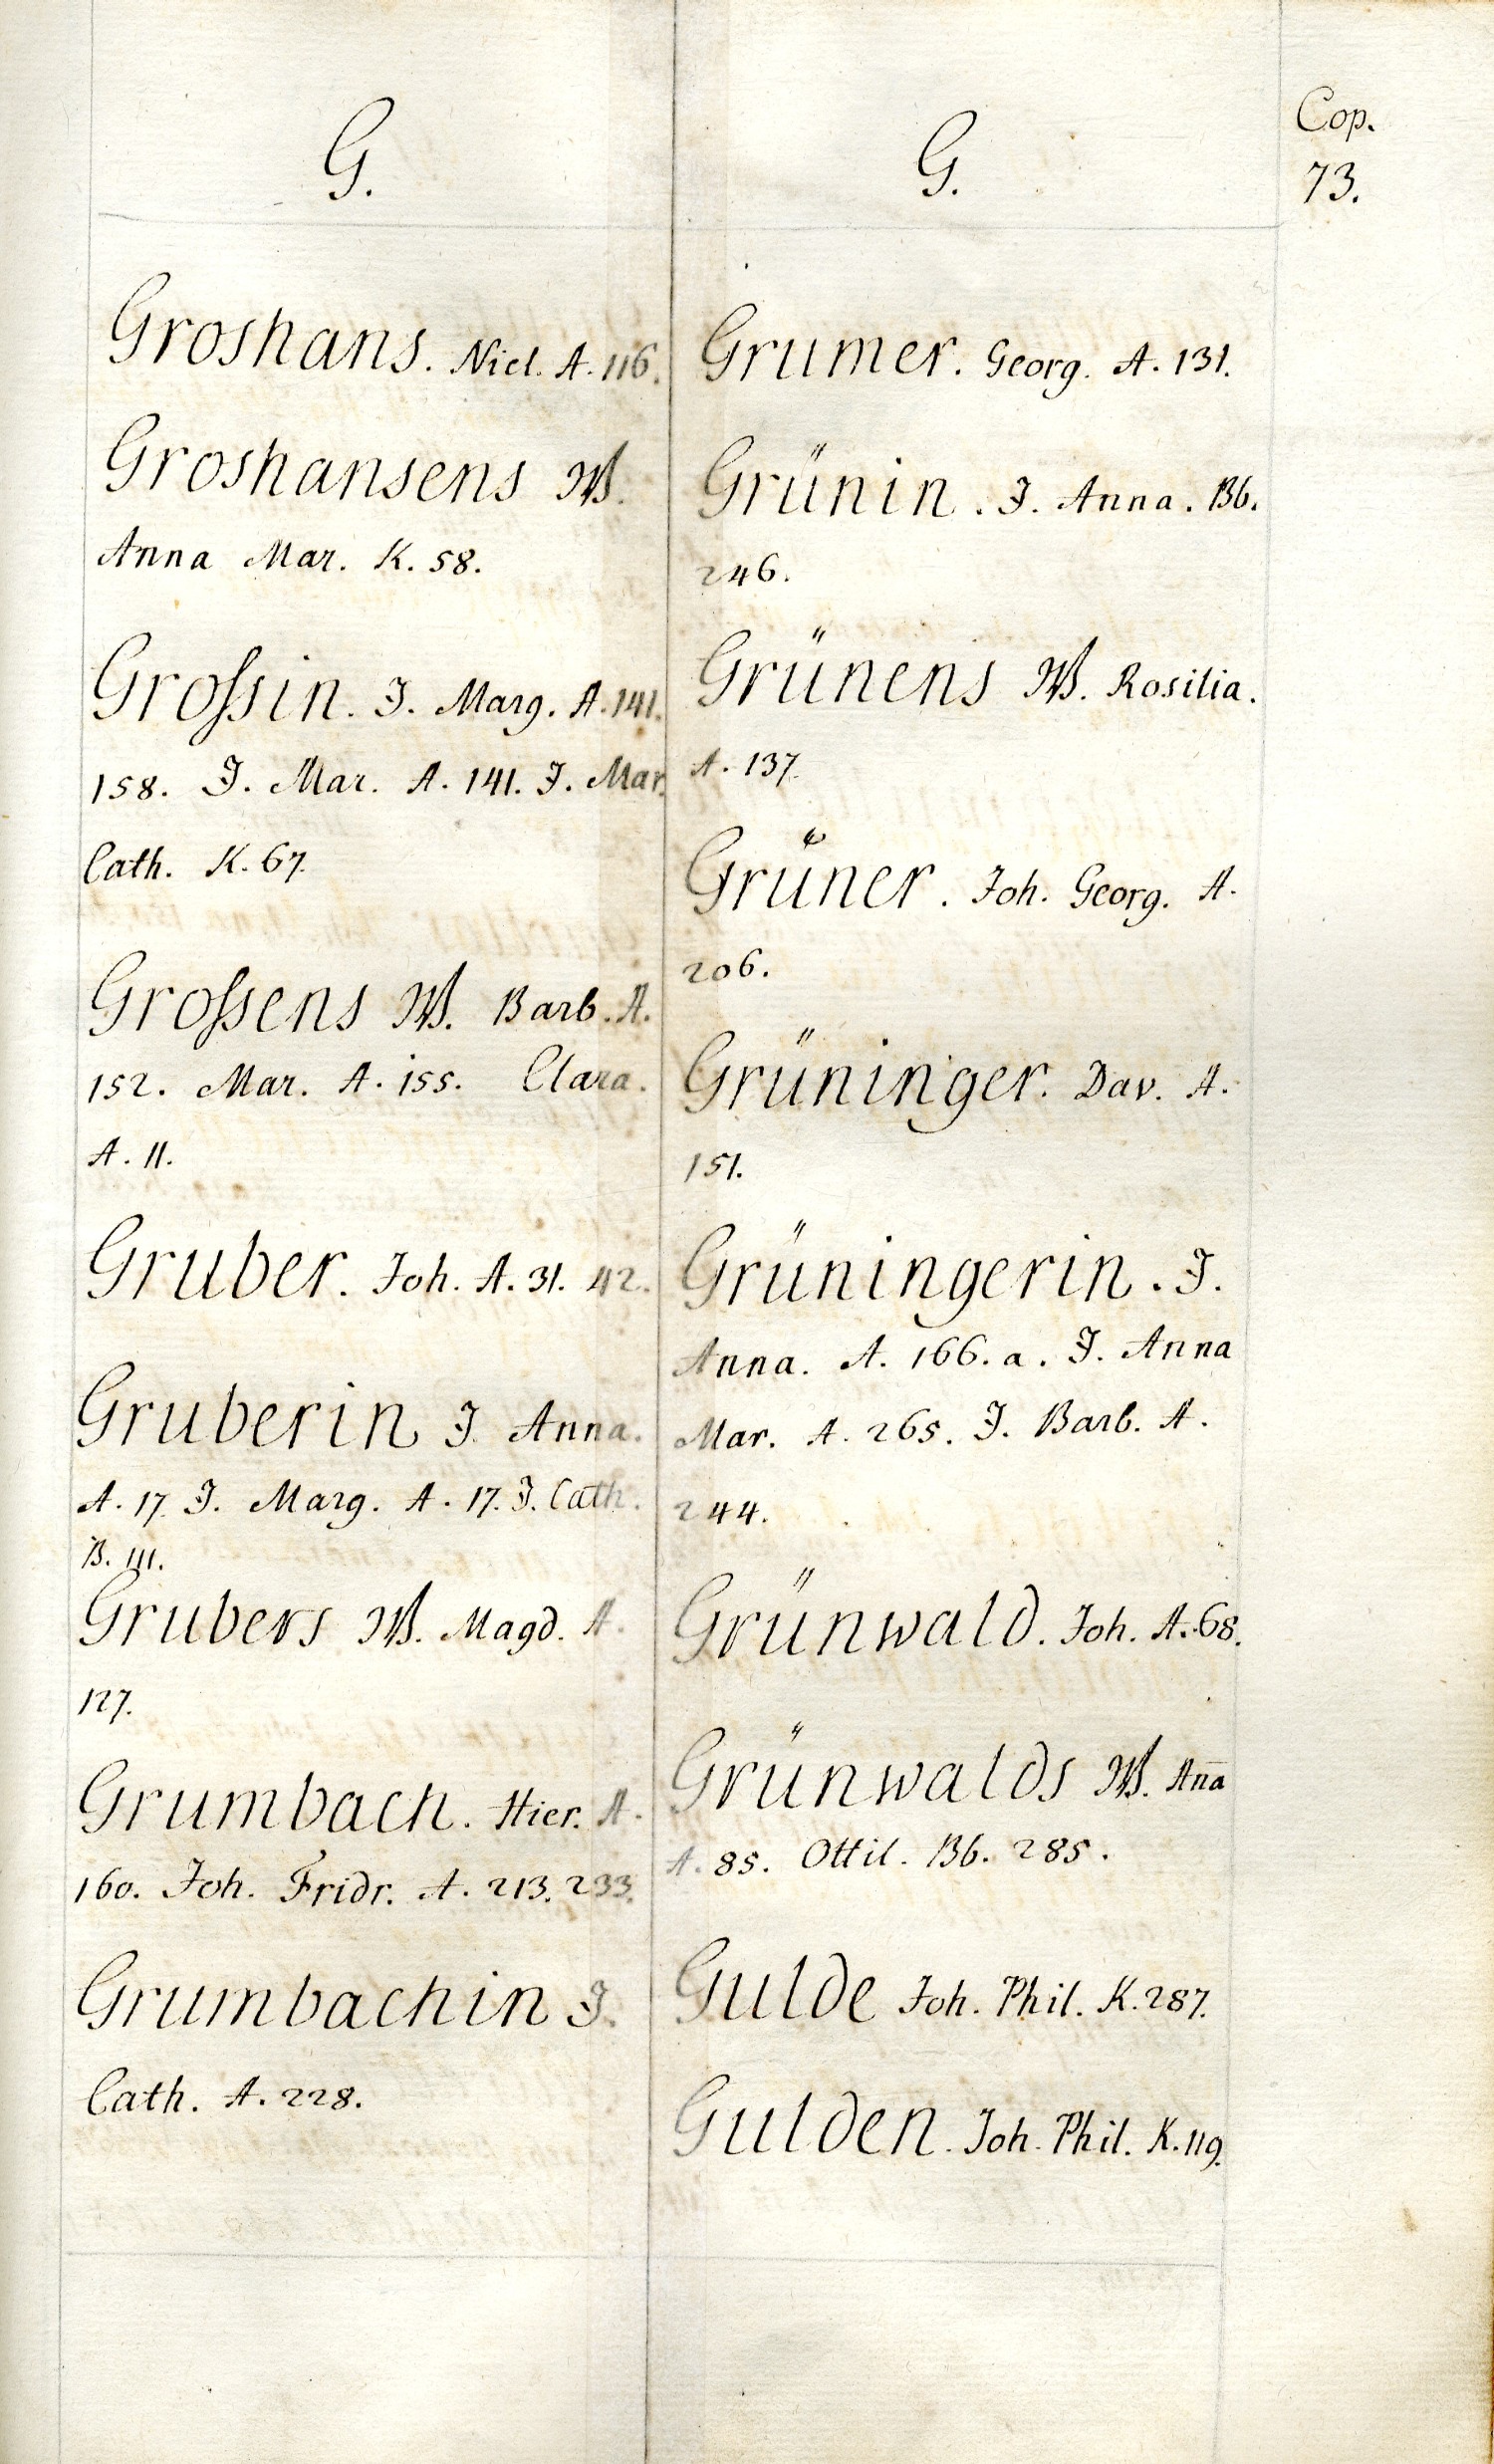 G.
Groshans. Nicl. A. 116.
Groshansens W.
Anna Mar. K. 58.
Groſsin. J. Marg. A. 141.
158. J. Mar. A. 141. J. Mar.
Cath. K. 67.
Groſsens W. Barb. A.
152. Mar. A. 155. Clara.
A. 11.
Gruber. Joh. A. 31. 42.
Gruberin J. Anna.
A. 17. J. Marg. A. 17. J. Cath.
B. 111.
Grubers W. Magd. A.
127.
Grumbach. Hier. A.
160. Joh. Fridr. A. 213. 233.
Grumbachin J.
Cath. A. 228.
G.
Grumer. Georg. A. 131.
Grünin. J. Anna. Bb.
246.
Grünens W. Rosilia.
A. 137.
Grüner. Joh. Georg. A.
206.
Grüninger. Dav. A.
151.
Grüningerin. J.
Anna. A. 166. a. J. Anna
Mar. A. 265. J. Barb. A.
244.
Grünwald. Joh. A. 68.
Grünwalds W. Ana̅
A. 85. Ottil. Bb. 285.
Gulde Joh. Phil. K. 287.
Gulden. Joh. Phil. K. 119.
Cop.
73.